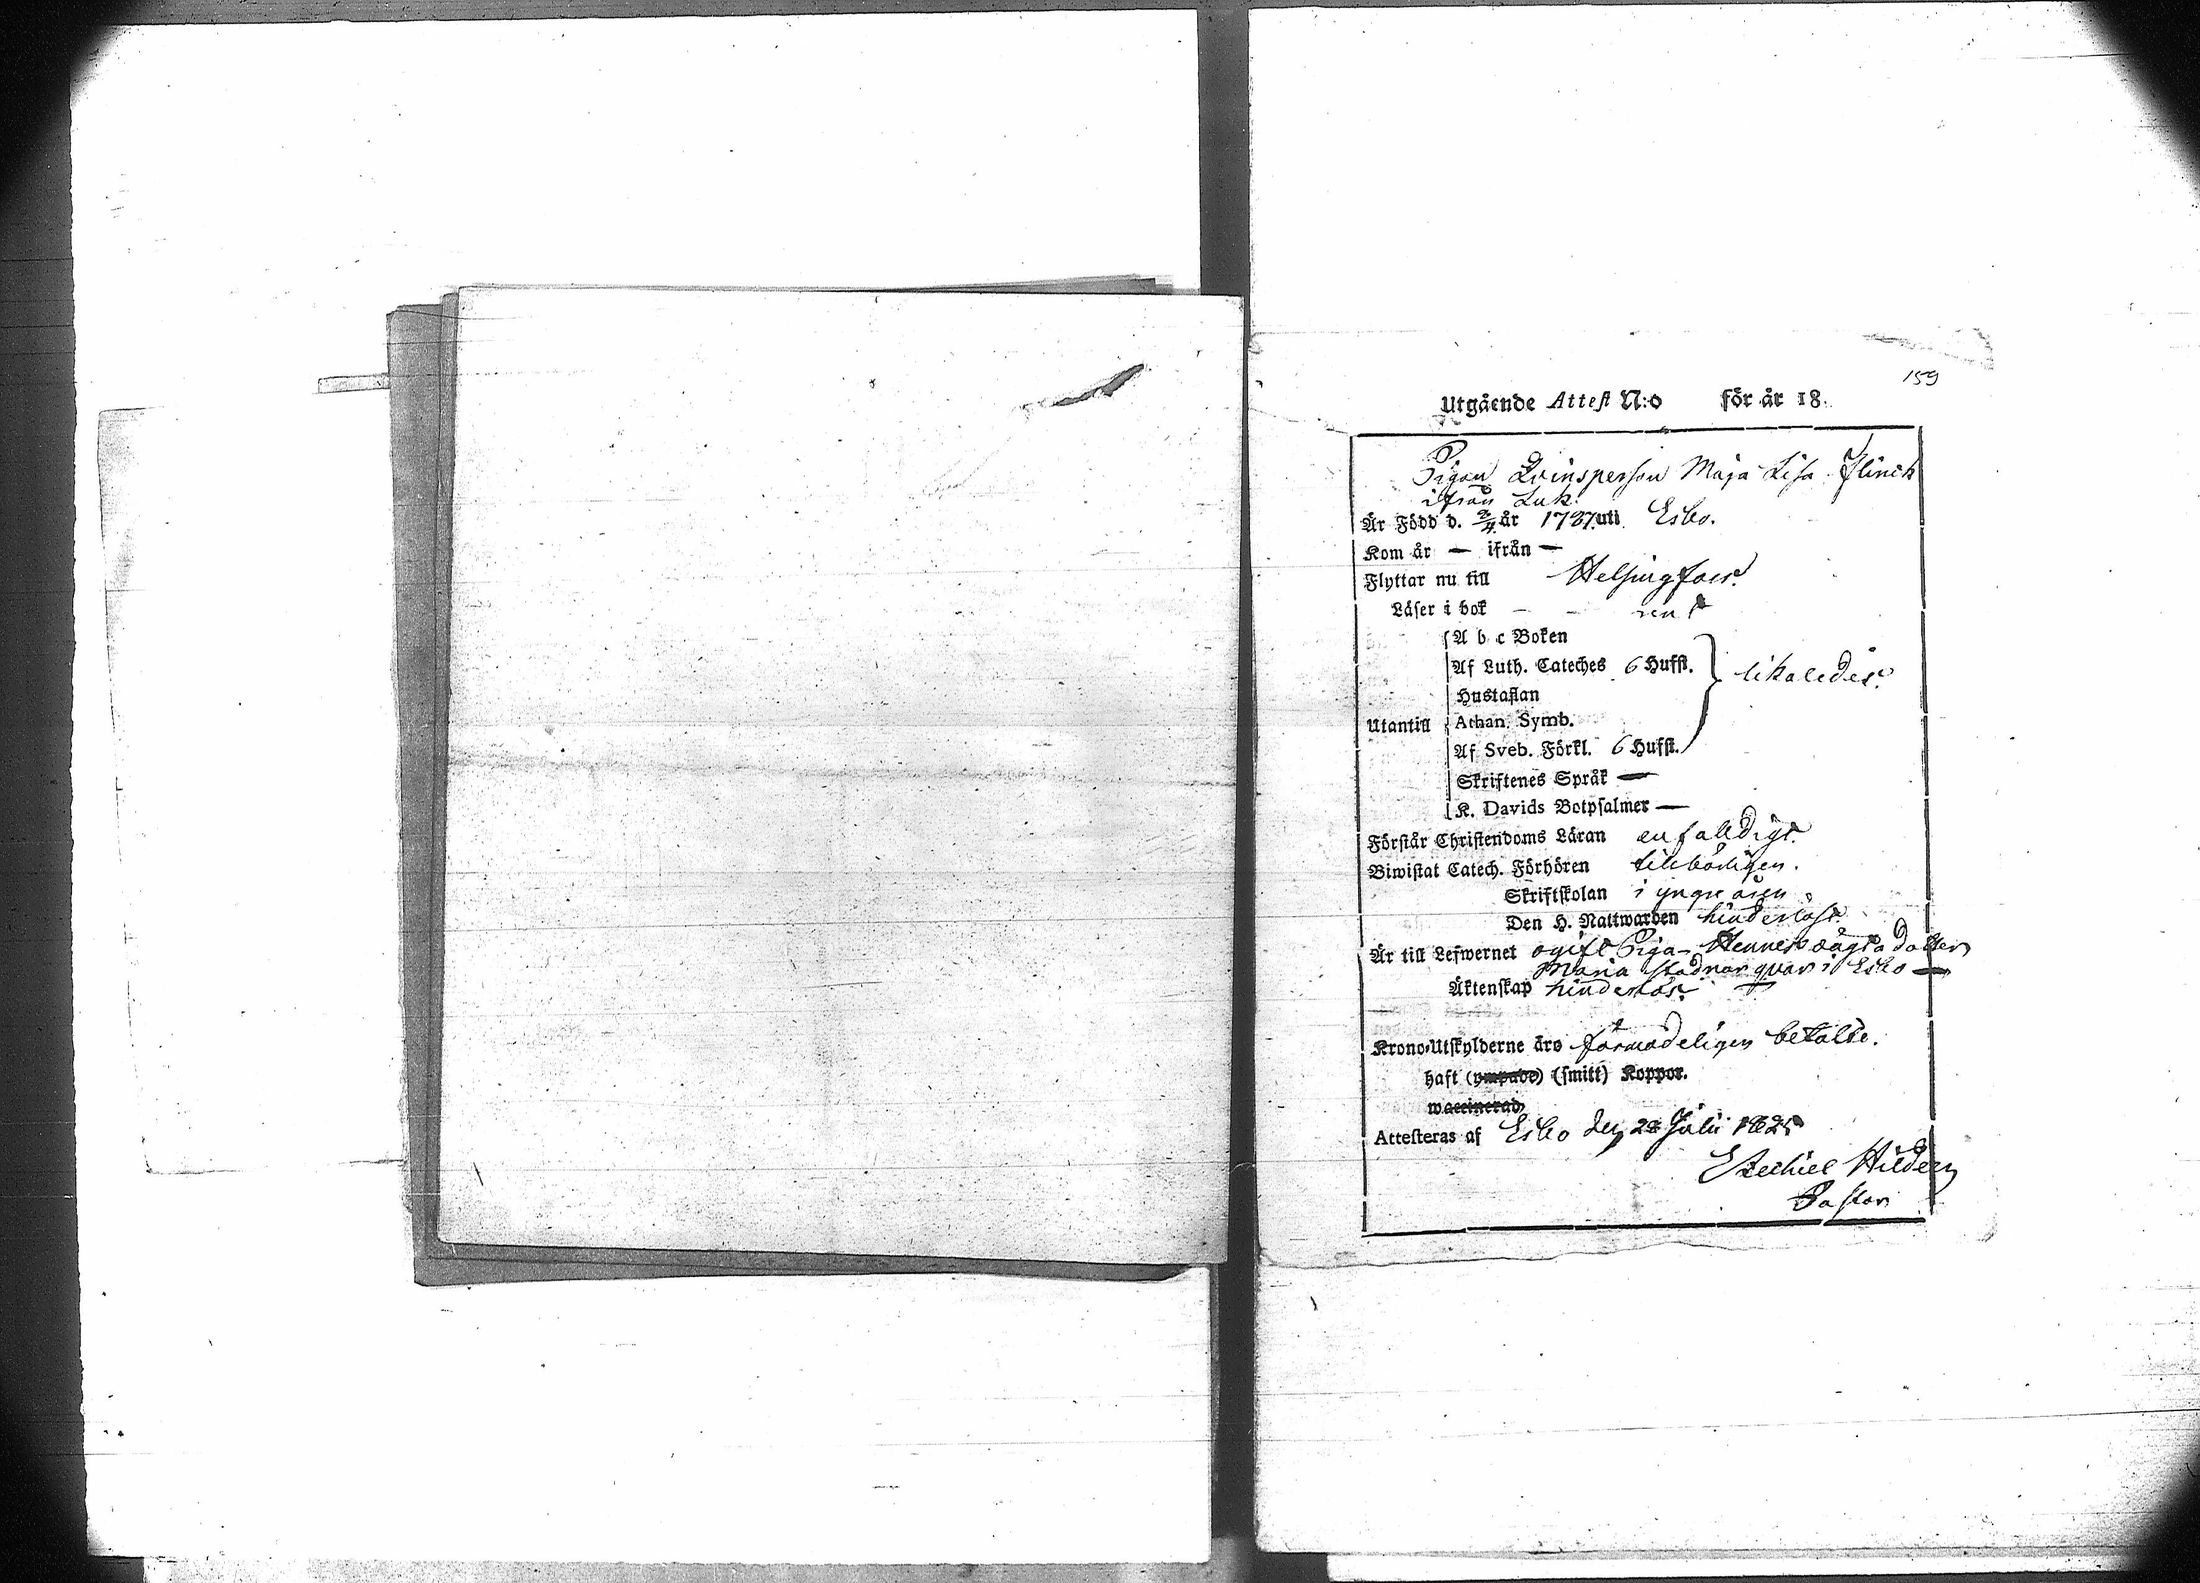 159
Utgående Attest N:o för år 18
Pigan Qvinspersson Maja Lisa Flinck
ifrån Luk:
Är Född d. 2/4 år 1787 uti Esbo.
Kom år — ifrån —
Flyttar nu till Helsingfors.
Läser i bok — — rent
A b c Boken
Af Luth. Cateches 6 Hufst.
Hustaflan
likaledes.
Utantill Athan. Symb.
Af Sveb. Förkl. 6 Hufst.
Skriftenes Språk —
K. Davids Botpsalmer —
Förstår Christendoms Läran enfaldigt
Biwistat Catech. Förhören tilbörligen.
Skriftskolan i yngre åren
Den H. Nattwarden hinderlöst
Är till Lefwernet ogift Piga – Hennes oägta dotter
Maria stadnar qvar i Esbo —
Äktenskap hinderlös.
Krono-Utskylderne äro förmodeligen betalte.
haft (ympade) (smitt) Koppor.
waccinerad
Attesteras af Esbo den 28 Julii 1825
Ezechiel Hildeen
Pastor